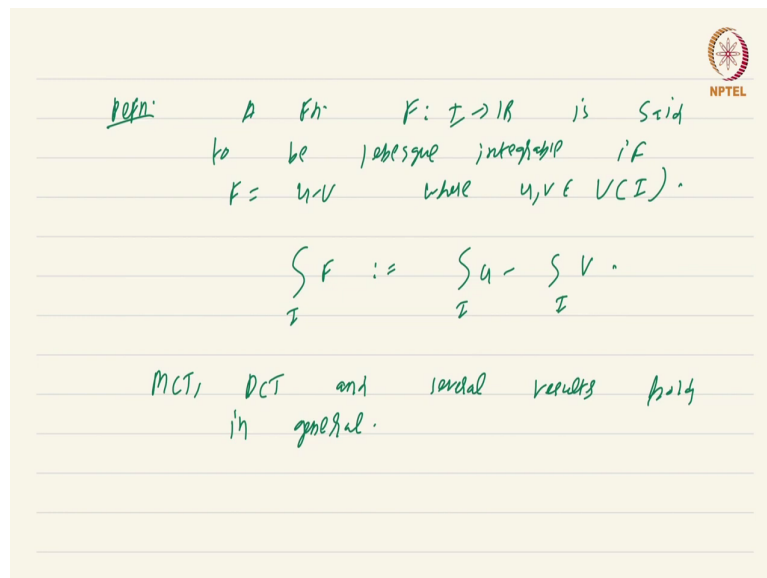 NPTEL
Defn: A Fn. F: I → IR is said
to be lebesgue integrable if
F = u-v where u,v ∈ U(I).
∫_I F := ∫_I u - ∫_I v.
MCT, DCT and several results hold
in general.